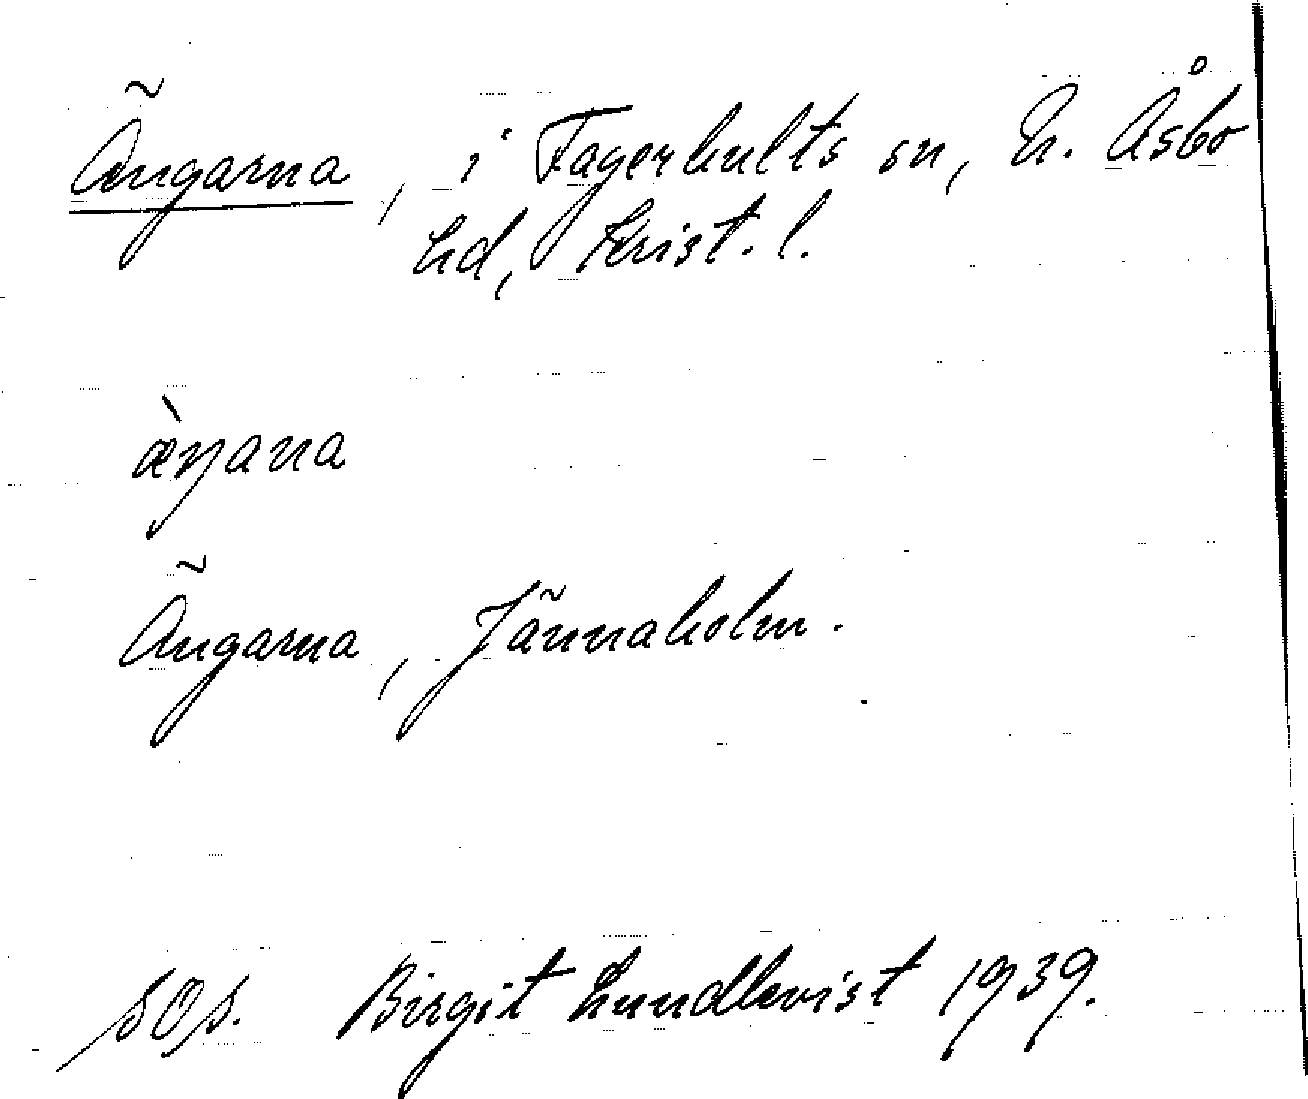 Ängarna, i Fagerhults sn, N. Åsbo
hd, Krist. l.
æ̀ŋana
Ängarna, Jännaholm.
Birgit Lundkvist 1939.